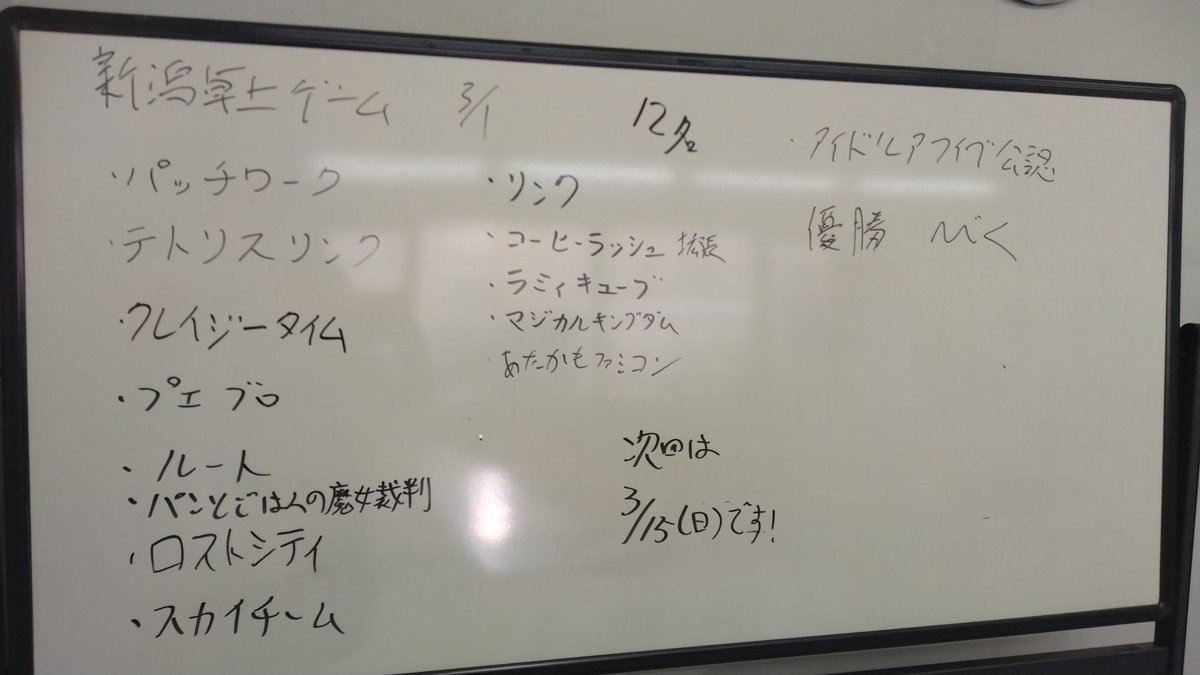 新潟卓上ゲーム 3/1 12名
・パッチワーク
・テトリスリンク
・クレイジータイム
・プエブロ
・ルート
・パンとごはんの魔女裁判
・ロストシティ
・スカイチーム
・リンク
・コーヒーラッシュ 拡張
・ラミィキューブ
・マジカルキングダム
・あたかもファミコン
・アイドルアライブ公認
優勝
次回は
3/15(日)です!